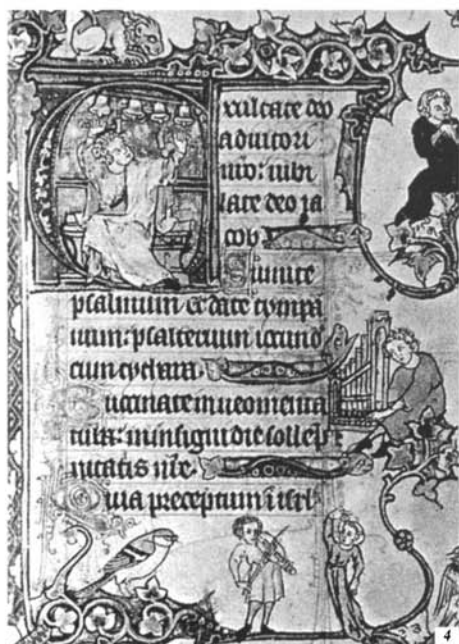 Exultate deo
adiutori
nr̄o: iubi
late deo ia
cob
Sumite
psalmum et date tympa
num: psalterium iocund
cum cythara
Buccinate in neomenia
tuba: in insigni die sollēp
nitatis nr̄e
Quia preceptum ī isrl
4